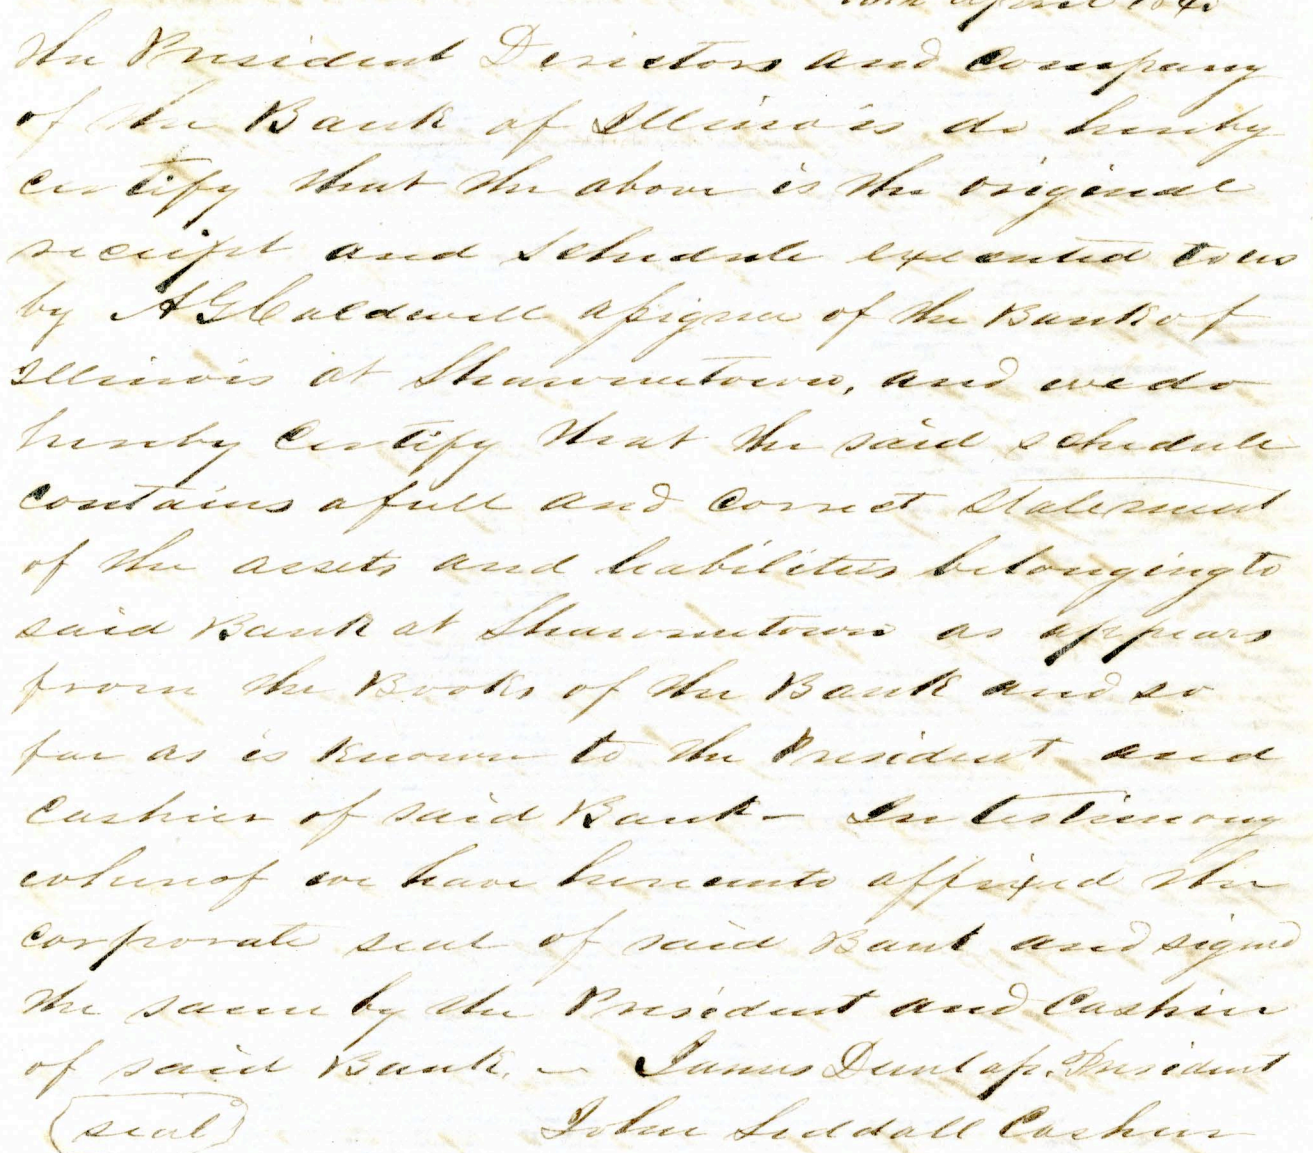 April 184
The President Directors and Company
of the Bank of Illinois do hereby
certify that the above is the original
receipt and schedule executed to us
by A G Caldwell assignee of the Bank of
Illinois at Shawneetown, and we do
hereby certify that the said schedule
contains a full and correct statement
of the assets and liabilities belonging to
said Bank at Shawneetown as appears
from the Books of the Bank and so
far as is known to the President and
Cashier of said Bank - In testimony
whereof we have hereunto affixed the
corporate seal of said Bank and signed
the same by the President and Cashier
of said Bank. - James Dunlap, President
(seal) John Siddall Cashier